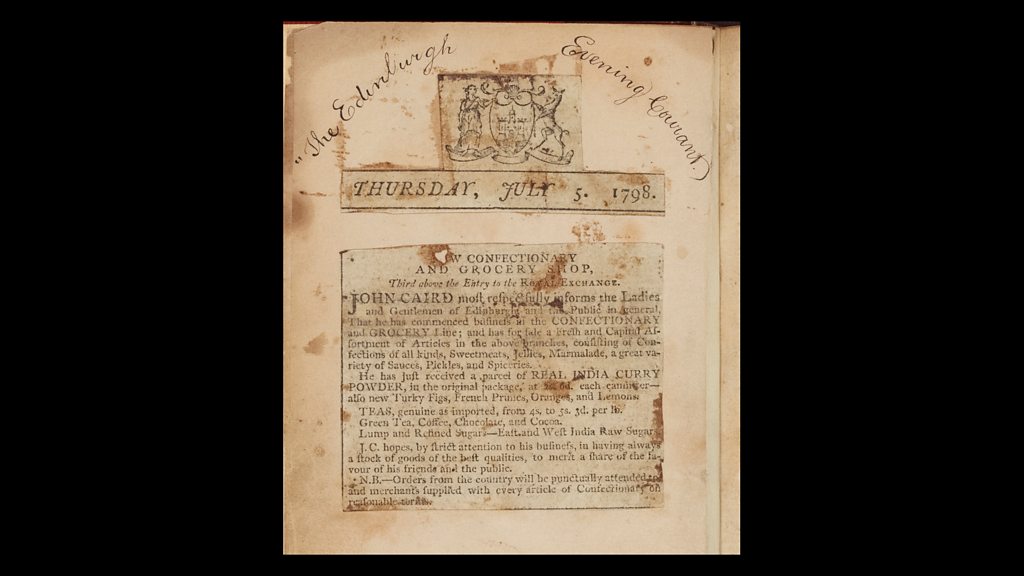 "The Edinburgh Evening Courant.
THURSDAY, JULY 5. 1798.
W CONFECTIONARY
AND GROCERY SHOP,
Third above the Entry to the ROYAL EXCHANGE.
JOHN CAIRD moſt reſpectfully informs the Ladies
and Gentlemen of Edinburgh and the Public in general,
That he has commenced buſineſs in the CONFECTIONARY
and GROCERY Line; and has for ſale a Freſh and Capital Aſ-
ſortment of Articles in the above branches, conſiſting of Con-
fections of all kinds, Sweetmeats, Jellies, Marmalade, a great va-
riety of Sauces, Pickles, and Spiceries.
He has juſt received a parcel of REAL INDIA CURRY
POWDER, in the original package, at 6d. each canniſter—
alſo new Turky Figs, French Prunes, Oranges, and Lemons.
TEAS, genuine as imported, from 4s. to 5s. 3d. per lb.
Green Tea, Coffee, Chocolate, and Cocoa.
Lump and Refined Sugars—Eaſt and Weſt India Raw Sugars.
J. C. hopes, by ſtrict attention to his buſineſs, in having always
a ſtock of goods of the beſt qualities, to merit a ſhare of the fa-
vour of his friends and the public.
N.B.—Orders from the country will be punctually attended to
and merchants ſupplied with every article of Confectionary on
reaſonable terms.